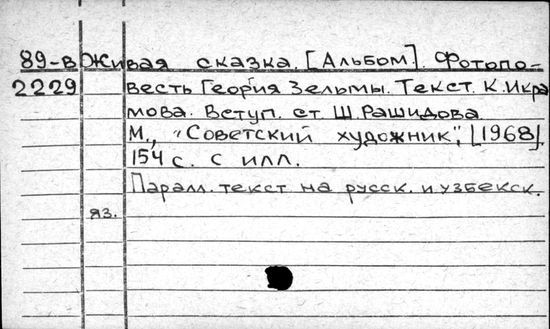 89-в Живая сказка. [Альбом]. Фотопо-
2229 весть Геория Зельмы. Текст. К. Икра
мова. Вступ. ст. Ш. Рашидова
М., "Советский художник", [1968].
154 с. с илл.
Паралл. текст на русск. и узбекск.
яз.